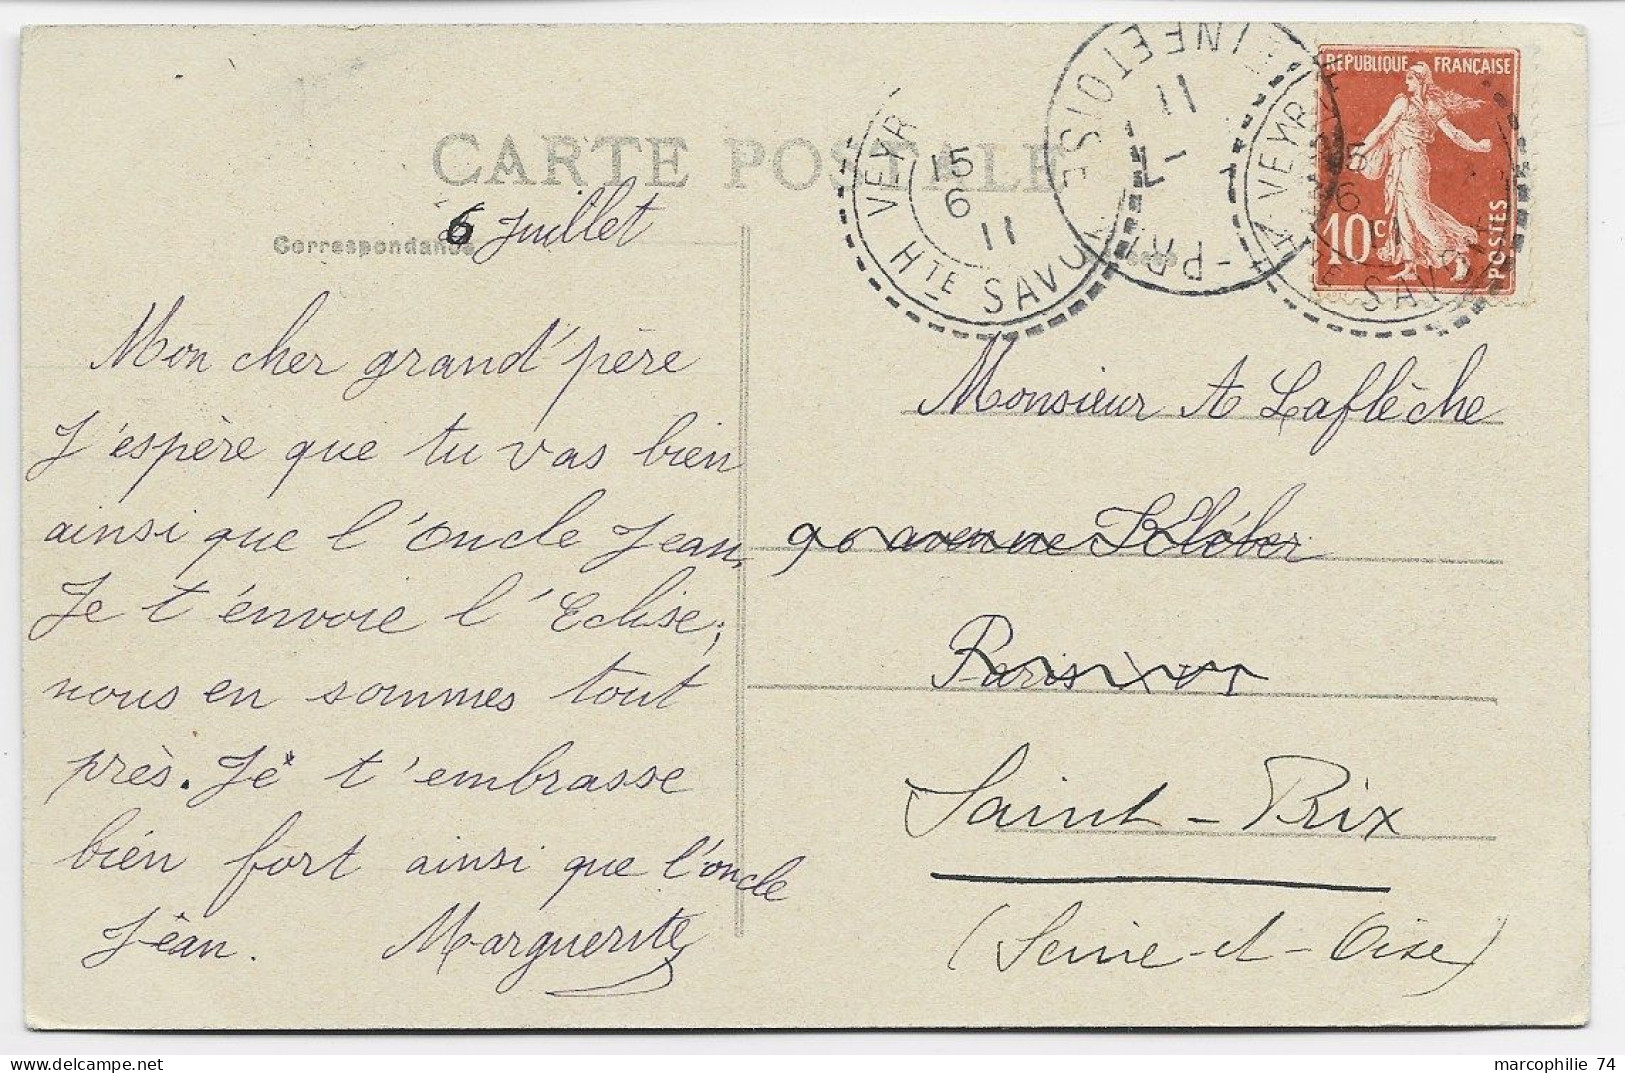 CARTE POSTALE
Correspondance
6 Juillet
Mon cher grand'père
J'espère que tu vas bien
ainsi que l'Oncle Jean,
Je t'envoie l'Eclise;
nous en sommes tout
près. Je t'embrasse
bien fort ainsi que l'oncle
Jean. Marguerite
VEYR
15
6
11
HTE SAVOI
INFETOISE
11
7
PRI
VEYR
15
6
11
HTE SAVOIE
REPUBLIQUE FRANÇAISE
10c
POSTES
Monsieur A Laflèche
90 avenue Kléber
Paris XVI
Saint-Prix
(Seine-et-Oise)
marcophilie 74